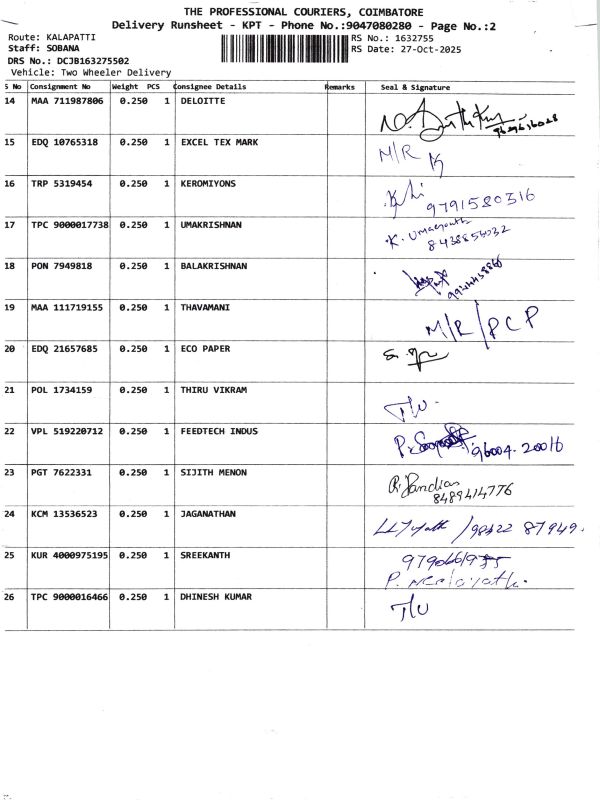 THE PROFESSIONAL COURIERS, COIMBATORE
Delivery Runsheet - KPT - Phone No.:9047080280 - Page No.:2
Route: KALAPATTI
RS No.: 1632755
Staff: SOBANA
RS Date: 27-Oct-2025
DRS No.: DCJB163275502
Vehicle: Two Wheeler Delivery
S No Consignment No Weight PCS Consignee Details Remarks Seal & Signature
14 MAA 711987806 0.250 1 DELOITTE
15 EDQ 10765318 0.250 1 EXCEL TEX MARK M/R
16 TRP 5319454 0.250 1 KEROMIYONS 9791580316
17 TPC 9000017738 0.250 1 UMAKRISHNAN K.
18 PON 7949818 0.250 1 BALAKRISHNAN
19 MAA 111719155 0.250 1 THAVAMANI M/R/PCP
20 EDQ 21657685 0.250 1 ECO PAPER
21 POL 1734159 0.250 1 THIRU VIKRAM
22 VPL 519220712 0.250 1 FEEDTECH INDUS 96004.20016
23 PGT 7622331 0.250 1 SIJITH MENON R. Pandian
8489414776
24 KCM 13536523 0.250 1 JAGANATHAN /98422 87949.
25 KUR 4000975195 0.250 1 SREEKANTH
26 TPC 9000016466 0.250 1 DHINESH KUMAR